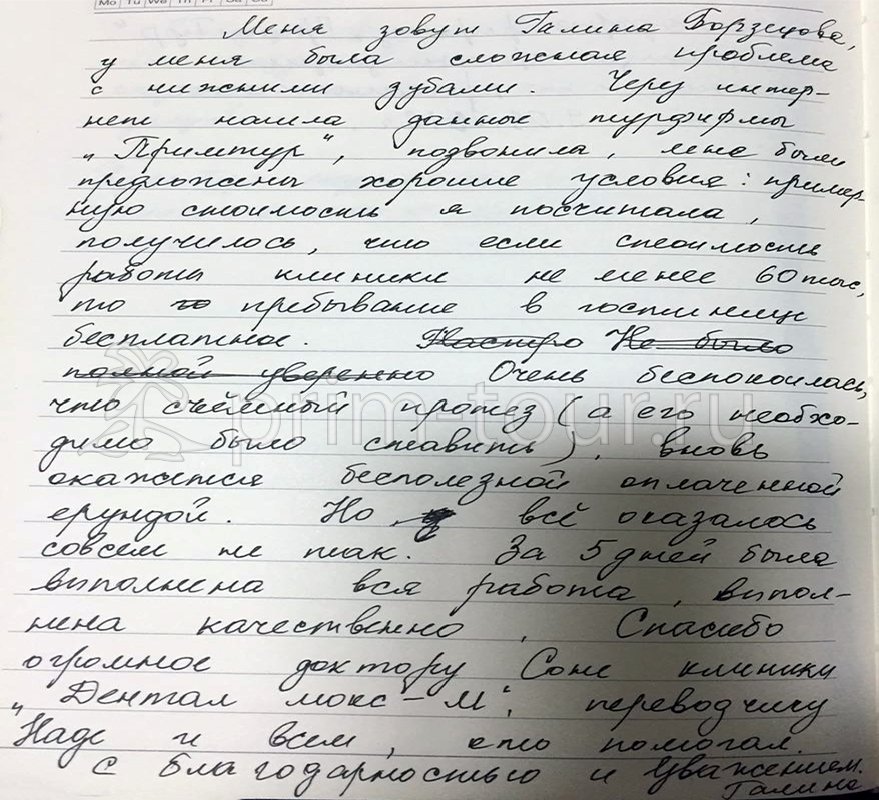 Mo Tu We Th Fr Sa Su
Меня зовут Галина Борзецова,
у меня была сложная проблема
с нижними зубами. Через интер-
нет нашла данные турфирмы
„Примтур", позвонила, мне были
предложены хорошие условия: пример-
ную стоимость я посчитала,
получилось, что если стоимость
работы клиники не менее 60 тыс,
то пребывание в гостинице
бесплатное. Не было
полной уверенно Очень беспокоилась,
что съёмный протез (а его необхо-
димо было ставить), вновь
окажется бесполезной оплаченной
ерундой. Но, всё оказалось
совсем не так. За 5 дней была
выполнена вся работа, выпол-
нена качественно, Спасибо
огромное доктору Соне клиники
„Дентал люкс-М", переводчику
Наде и всем, кто помогал.
С благодарностью и уважением.
Галина
prim-tour.ru